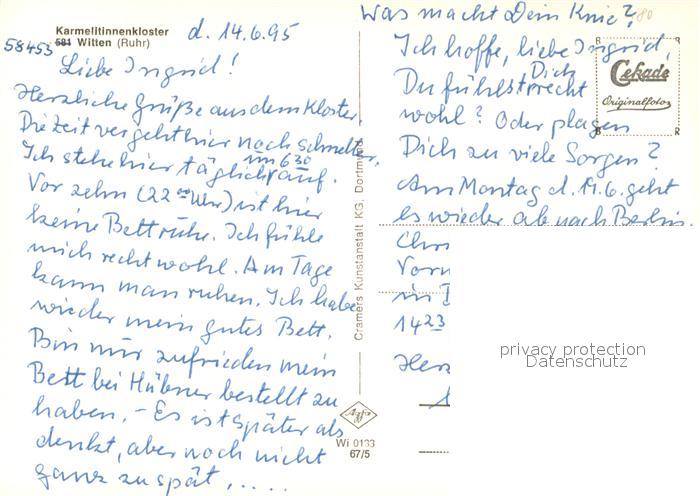 Karmelitinnenkloster
58453 581 Witten (Ruhr)
d. 14.6.95
Liebe Ingrid!
Herzliche Grüße aus dem Kloster.
Die Zeit vergeht hier noch schneller,
Ich stehe hier täglich um 6 30 auf.
Vor zehn (22 00 Uhr) ist hier
keine Bettruhe. Ich fühle
mich recht wohl. Am Tage
kann man ruhen. Ich habe
wieder mein gutes Bett.
Bin nur zufrieden mein
Bett bei Hübner bestellt zu
haben. – Es ist später als
denkt, aber noch nicht
ganz zu spät, .....
Cramers Kunstanstalt KG, Dortmund
Agfa
Wi 0133
67/5
Was macht Dein Knie?
80
Ich hoffe, liebe Ingrid,
Du fühlst Dich recht
wohl? Oder plagen
Dich zu viele Sorgen?
Am Montag d. 19.6. geht
es wieder ab nach Berlin.
Cekade
Originalfoto
Chr
Vorm
im
14 23
Herz
privacy protection
Datenschutz